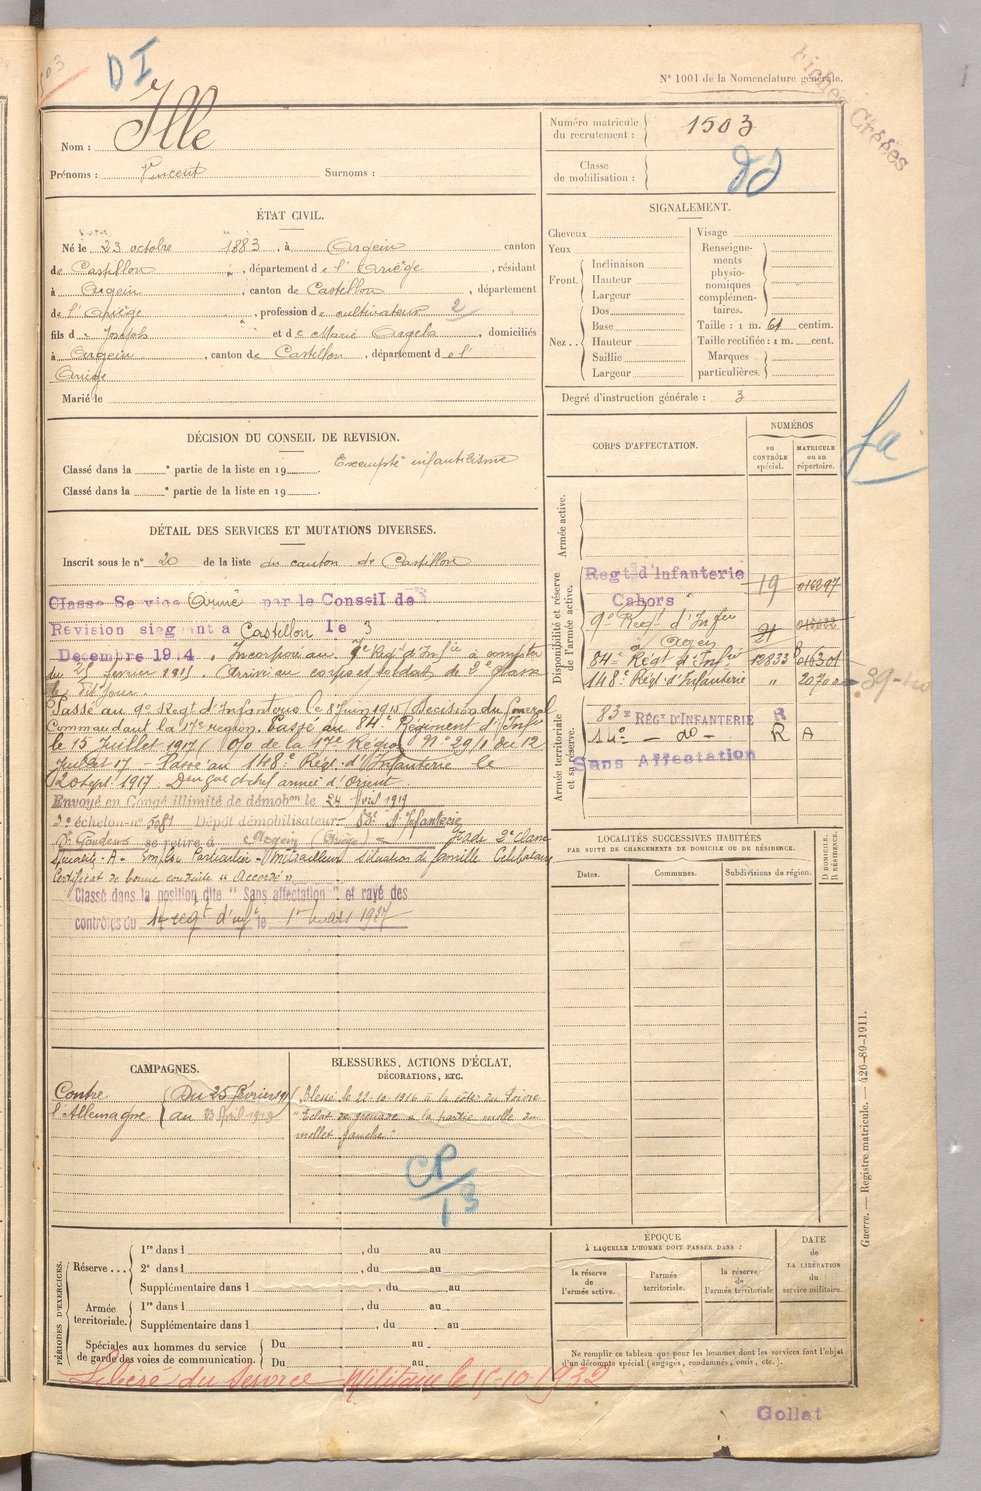 D I
N° 1001 de la Nomenclature générale.
Fiches Créées
Nom : Ille
Prénoms : Vincent Surnoms :
Numéro matricule du recrutement : 1503
Classe de mobilisation :
ÉTAT CIVIL.
Né le 23 octobre 1883, à Argein canton
de Castillon, département de l'Ariège, résidant
à Argein, canton de Castillon, département
de l'Ariège, profession de cultivateur 2
fils de Joseph et de Marie Argela, domiciliés
à Argein, canton de Castillon, département de l'
Ariège
Marié le
SIGNALEMENT.
Cheveux
Yeux
Front. Inclinaison
Hauteur
Largeur
Nez.. Dos
Base
Hauteur
Saillie
Largeur
Visage
Renseignements physionomiques complémentaires.
Taille : 1 m. 61 centim.
Taille rectifiée : 1 m. cent.
Marques particulières.
Degré d'instruction générale : 3
DÉCISION DU CONSEIL DE REVISION.
Classé dans la e partie de la liste en 19 Exempté infantilisme
Classé dans la e partie de la liste en 19
DÉTAIL DES SERVICES ET MUTATIONS DIVERSES.
Inscrit sous le n° 20 de la liste du canton de Castillon
Classé Service Armé par le Conseil de
Revision siegeant a Castillon le 3
Decembre 1914. Incorporé au 9e Régt d'Infie à compter
du 25 février 1915. Arrivé au corps et soldat de 2e classe
le dit jour.
Passé au 9e Regt d'Infanterie le 8 Juin 1915 (décision du General
Commandant la 17e region. Passé au 84e Régiment d'Infie
le 15 Juillet 1917 (O/O de la 17e Région N° 29/1 du 12
Juillet 17 - Passé au 148e Régt d'Infanterie le
20 Sept. 1917. Don Gal et chef armée d'Orient
Envoyé en Congé illimité de démobon le 24 Avril 1919
3e échelon n° 5081 Dépôt démobilisateur 83e d'Infanterie
St Gaudens se retire à Argein (Ariège) - Grade 2e classe
Spécialité - A - Emploi Particulier - Mitrailleur Situation de famille Célibataire
Certificat de bonne conduite "Accordé"
Classé dans la position dite "Sans affectation" et rayé des
contrôles du 14 régt d'inf le 1er mars 1927
CORPS D'AFFECTATION.
NUMÉROS
au CONTRÔLE spécial.
MATRICULE ou au répertoire.
Armée active.
Disponibilité et réserve de l'armée active.
Regt d'Infanterie 19 016297
Cahors
9e Regt d'Infie 21
à Agen
84e Régt d'Infie 12833 016301
148e Régt d'Infanterie " 20700
Armée territoriale et sa réserve.
83e RÉGT D'INFANTERIE R
14e - do - R A
Sans Affectation
LOCALITÉS SUCCESSIVES HABITÉES
PAR SUITE DE CHANGEMENTS DE DOMICILE OU DE RÉSIDENCE.
Dates. Communes. Subdivisions de région. D DOMICILE. R RÉSIDENCE.
CAMPAGNES.
Contre Du 25 février 1915
l'Allemagne au 23 Avril 1919
BLESSURES, ACTIONS D'ÉCLAT,
DÉCORATIONS, ETC.
Blessé le 22-10-1916 à la côte du Poivre
"Eclat de grenade à la partie molle du
mollet gauche."
CP/13
PÉRIODES D'EXERCICES.
Réserve ... 1re dans l , du au
2e dans l , du au
Supplémentaire dans l , du au
Armée territoriale. 1re dans l , du au
Supplémentaire dans l , du au
Spéciales aux hommes du service de garde des voies de communication. Du au
Du au
Libéré du Service Militaire le 15-10-1932
ÉPOQUE
À LAQUELLE L'HOMME DOIT PASSER DANS :
la réserve de l'armée active.
l'armée territoriale.
la réserve de l'armée territoriale
DATE de LA LIBÉRATION du service militaire.
Ne remplir ce tableau que pour les hommes dont les services font l'objet
d'un décompte spécial (engagés, condamnés, omis, etc.).
Guerre. — Registre matricule. — 426-89-1911.
Gollat